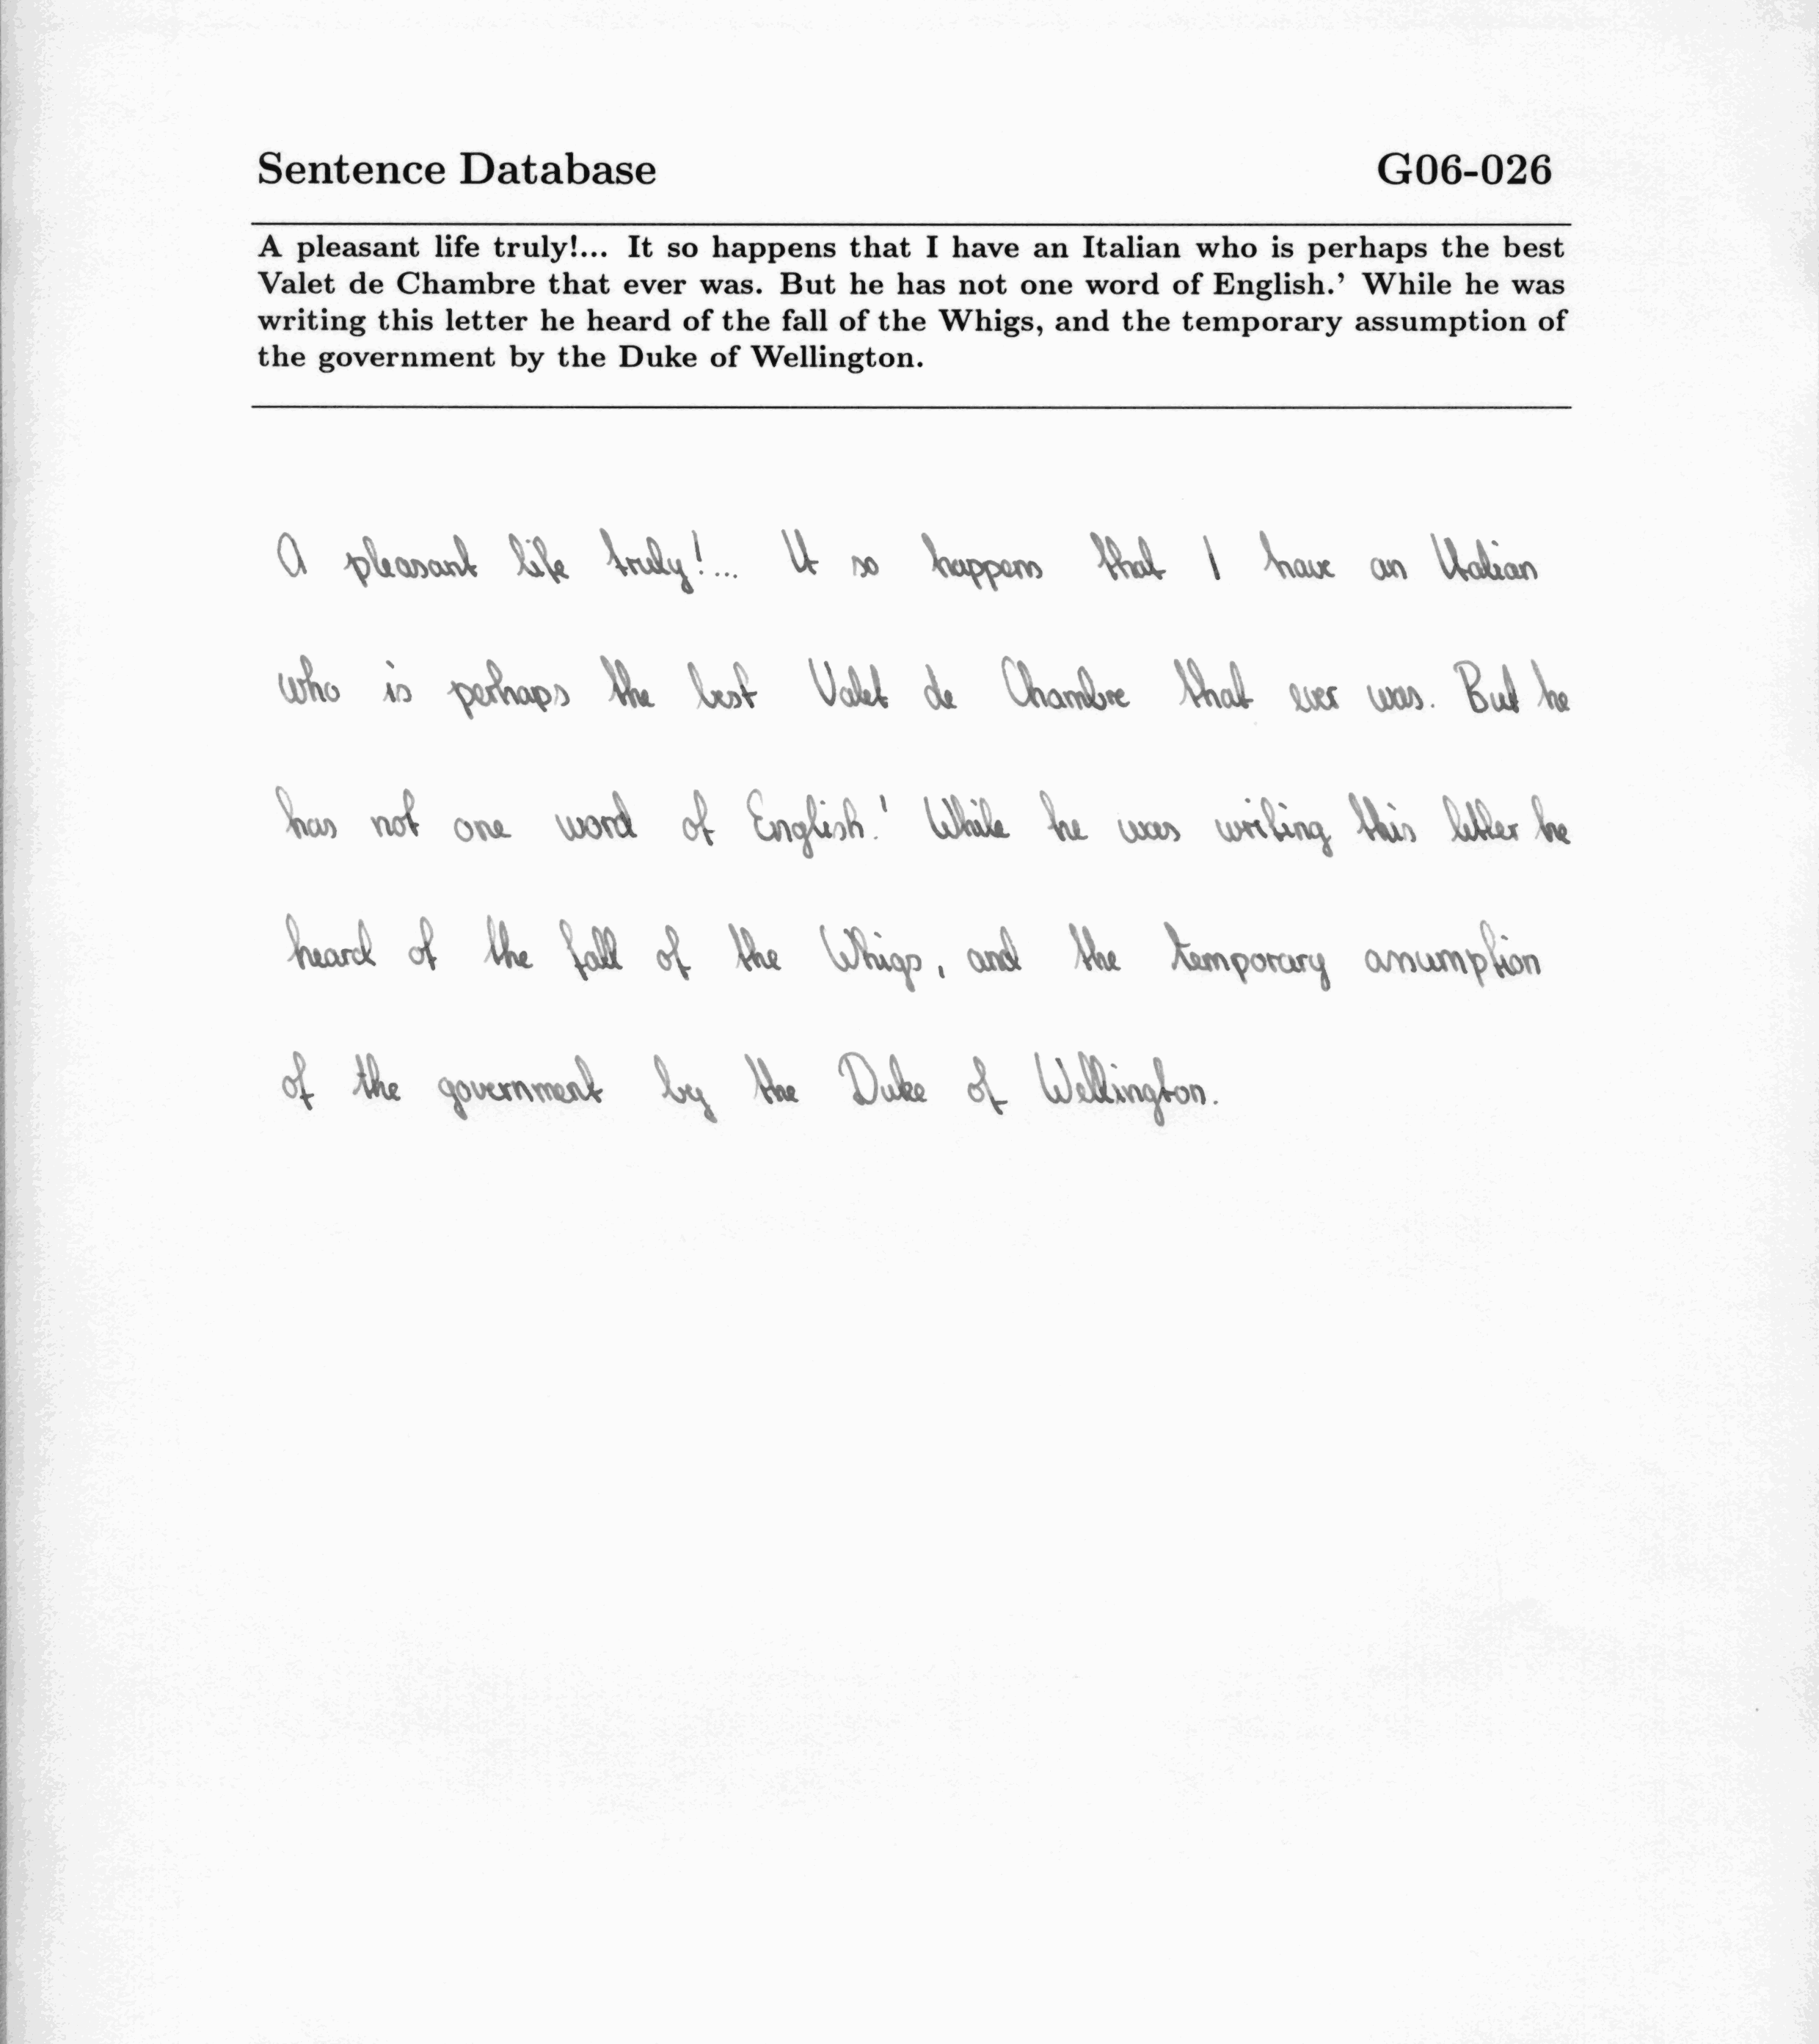 Sentence Database G06-026
A pleasant life truly!... It so happens that I have an Italian who is perhaps the best
Valet de Chambre that ever was. But he has not one word of English.' While he was
writing this letter he heard of the fall of the Whigs, and the temporary assumption of
the government by the Duke of Wellington.
A pleasant life truly!... It so happens that I have an Italian
who is perhaps the best Valet de Chambre that ever was. But he
has not one word of English.' While he was writing this letter he
heard of the fall of the Whigs, and the temporary assumption
of the government by the Duke of Wellington.